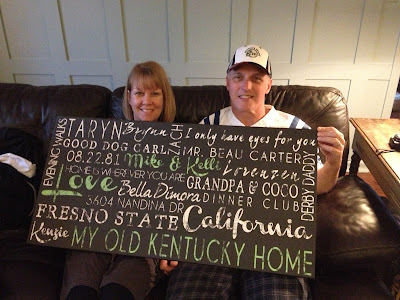 TARYN Brynn ZACH I only have eyes for you
EVENING WALKS
GOOD DOG CARL MR. BEAU CARTER
08.22.81 Mike & Kelli Lorenzen
HOME IS WHEREVER YOU ARE
Love Bella Dimora GRANDPA & COCO
3604 NANDINA DR DINNER CLUB
DERBY DADDY
FRESNO STATE California
Kenzie MY OLD KENTUCKY HOME